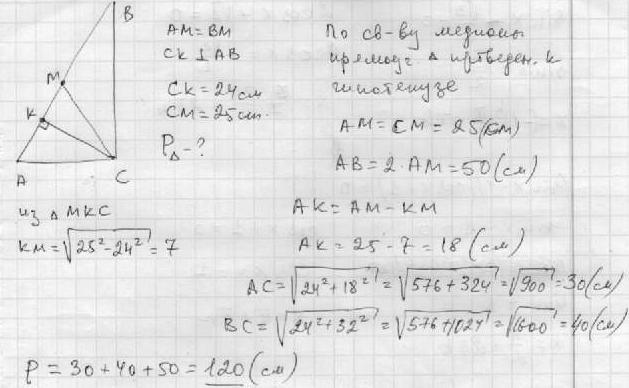 B
M
K
A
C
AM = BM
CK ⊥ AB
CK = 24 см
CM = 25 см.
P△ - ?
По св-ву медианы
прямоуг △ проведен. к
гипотенузе
AM = CM = 25 (см)
AB = 2 · AM = 50 (см)
из △ MKC
KM = √25² - 24² = 7
AK = AM - KM
AK = 25 - 7 = 18 (см)
AC = √24² + 18² = √576 + 324 = √900 = 30 (см)
BC = √24² + 32² = √576 + 1024 = √1600 = 40 (см)
P = 30 + 40 + 50 = 120 (см)